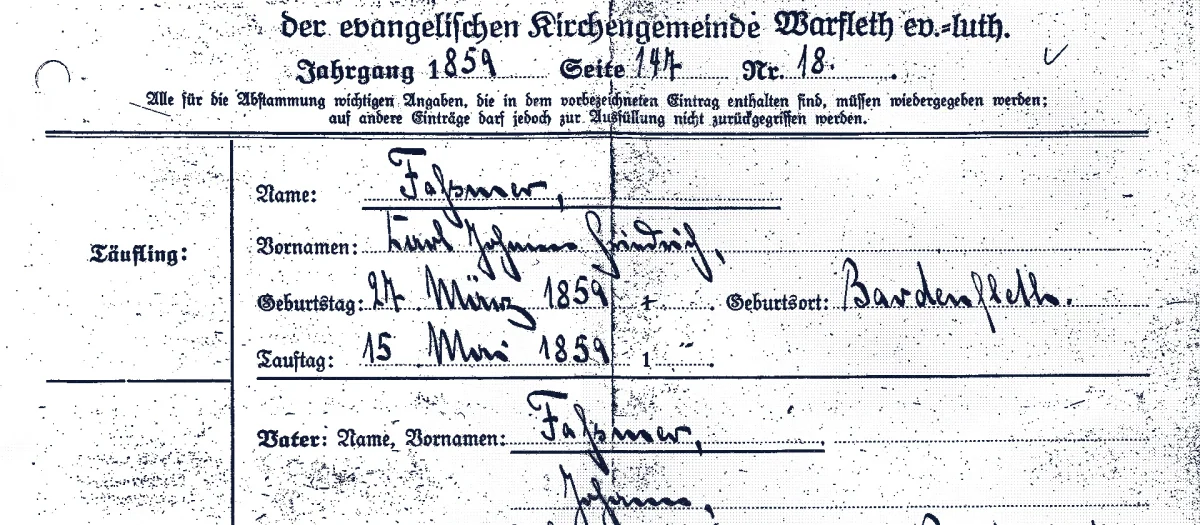 der evangelischen Kirchengemeinde Warfleth ev.-luth.
Jahrgang 1859 Seite 147 Nr. 18.
Alle für die Abstammung wichtigen Angaben, die in dem vorbezeichneten Eintrag enthalten sind, müssen wiedergegeben werden;
auf andere Einträge darf jedoch zur Ausfüllung nicht zurückgegriffen werden.
Name: Faßmer,
Täufling:
Vornamen: Karl Johann Friedrich,
Geburtstag: 27. März 1859 Geburtsort: Bardenfleth.
Tauftag: 15 Mai 1859
Vater: Name, Vornamen: Faßmer,
Johann,